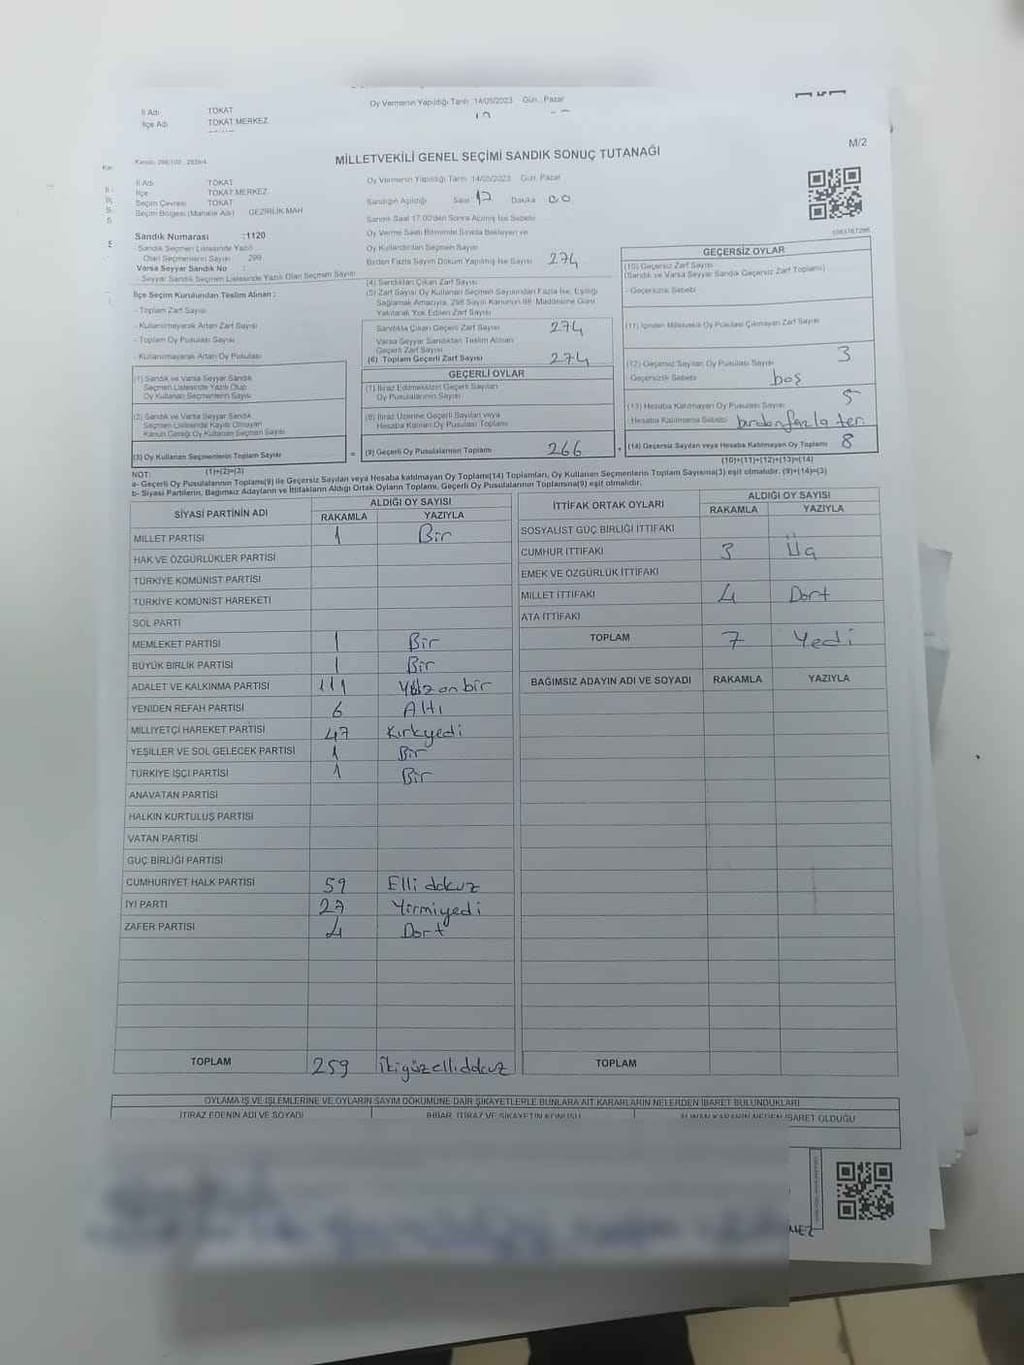 İl Adı TOKAT
İlçe Adı TOKAT MERKEZ
Oy Vermenin Yapıldığı Tarih 14/05/2023 Gün Pazar
M/2
MİLLETVEKİLİ GENEL SEÇİMİ SANDIK SONUÇ TUTANAĞI
İl Adı TOKAT
İlçe TOKAT MERKEZ
Seçim Çevresi TOKAT
Seçim Bölgesi (Mahalle Adı) GEZİRLİK MAH
Oy Vermenin Yapıldığı Tarih 14/05/2023 Gün Pazar
Sandığın Açıldığı Saat 17 Dakika 00
Sandık Saat 17.00'den Sonra Açılmış İse Sebebi
Sandık Numarası :1120
- Sandık Seçmen Listesinde Yazılı
Olan Seçmenlerin Sayısı 299
Varsa Seyyar Sandık No :
- Seyyar Sandık Seçmen Listesinde Yazılı Olan Seçmen Sayısı
İlçe Seçim Kurulundan Teslim Alınan :
- Toplam Zarf Sayısı
- Kullanılmayarak Artan Zarf Sayısı
- Toplam Oy Pusulası Sayısı
- Kullanılmayarak Artan Oy Pusulası
(1) Sandık ve Varsa Seyyar Sandık
Seçmen Listesinde Yazılı Olup
Oy Kullanan Seçmenlerin Sayısı
(2) Sandık ve Varsa Seyyar Sandık
Seçmen Listesinde Kayıtlı Olmayan
Kanun Gereği Oy Kullanan Seçmen Sayısı
(3) Oy Kullanan Seçmenlerin Toplam Sayısı
(1)+(2)=(3)
Oy Kullandırılan Seçmen Sayısı
Birden Fazla Sayım Döküm Yapılmış İse Sayısı 274
(4) Sandıktan Çıkan Zarf Sayısı
(5) Zarf Sayısı Oy Kullanan Seçmen Sayısından Fazla İse, Eşitliği
Sağlamak Amacıyla, 298 Sayılı Kanunun 98. Maddesine Göre
Yakılarak Yok Edilen Zarf Sayısı
Sandıkta Çıkan Geçerli Zarf Sayısı 274
Varsa Seyyar Sandıktan Teslim Alınan
Geçerli Zarf Sayısı
(6) Toplam Geçerli Zarf Sayısı 274
GEÇERLİ OYLAR
(7) İtiraz Edilmeksizin Geçerli Sayılan
Oy Pusulalarının Sayısı
(8) İtiraz Üzerine Geçerli Sayılan veya
Hesaba Katılan Oy Pusulası Toplamı
= (9) Geçerli Oy Pusulalarının Toplamı 266
GEÇERSİZ OYLAR
(10) Geçersiz Zarf Sayısı
(Sandık ve Varsa Seyyar Sandık Geçersiz Zarf Toplamı)
- Geçersizlik Sebebi
(11) İçinden Milletvekili Oy Pusulası Çıkmayan Zarf Sayısı
(12) Geçersiz Sayılan Oy Pusulası Sayısı 3
Geçersizlik Sebebi boş
(13) Hesaba Katılmayan Oy Pusulası Sayısı 5
Hesaba Katılmama Sebebi
+ (14) Geçersiz Sayılan veya Hesaba Katılmayan Oy Toplamı 8
(10)+(11)+(12)+(13)=(14)
NOT:
a- Geçerli Oy Pusulalarının Toplamı(9) ile Geçersiz Sayılan veya Hesaba katılmayan Oy Toplamı(14) Toplamları, Oy Kullanan Seçmenlerin Toplam Sayısına(3) eşit olmalıdır. (9)+(14)=(3)
b- Siyasi Partilerin, Bağımsız Adayların ve İttifakların Aldığı Ortak Oyların Toplamı, Geçerli Oy Pusulalarının Toplamına(9) eşit olmalıdır.
SİYASİ PARTİNİN ADI ALDIĞI OY SAYISI
RAKAMLA YAZIYLA
MİLLET PARTİSİ 1 Bir
HAK VE ÖZGÜRLÜKLER PARTİSİ
TÜRKİYE KOMÜNİST PARTİSİ
TÜRKİYE KOMÜNİST HAREKETİ
SOL PARTİ
MEMLEKET PARTİSİ 1 Bir
BÜYÜK BİRLİK PARTİSİ 1 Bir
ADALET VE KALKINMA PARTİSİ 111 Yüz on bir
YENİDEN REFAH PARTİSİ 6 Altı
MİLLİYETÇİ HAREKET PARTİSİ 47 Kırkyedi
YEŞİLLER VE SOL GELECEK PARTİSİ 1 Bir
TÜRKİYE İŞÇİ PARTİSİ 1 Bir
ANAVATAN PARTİSİ
HALKIN KURTULUŞ PARTİSİ
VATAN PARTİSİ
GÜÇ BİRLİĞİ PARTİSİ
CUMHURİYET HALK PARTİSİ 59 Elli dokuz
İYİ PARTİ 27 Yirmiyedi
ZAFER PARTİSİ 4 Dort
TOPLAM 259 İkiyüzellidokuz
İTTİFAK ORTAK OYLARI ALDIĞI OY SAYISI
RAKAMLA YAZIYLA
SOSYALİST GÜÇ BİRLİĞİ İTTİFAKI
CUMHUR İTTİFAKI 3 Üç
EMEK VE ÖZGÜRLÜK İTTİFAKI
MİLLET İTTİFAKI 4 Dort
ATA İTTİFAKI
TOPLAM 7 Yedi
BAĞIMSIZ ADAYIN ADI VE SOYADI RAKAMLA YAZIYLA
TOPLAM
OYLAMA İŞ VE İŞLEMLERİNE VE OYLARIN SAYIM DÖKÜMÜNE DAİR ŞİKAYETLERLE BUNLARA AİT KARARLARIN NELERDEN İBARET BULUNDUKLARI
İTİRAZ EDENİN ADI VE SOYADI İHBAR, İTİRAZ VE ŞİKAYETİN KONUSU ALINAN KARARIN NEDEN İBARET OLDUĞU